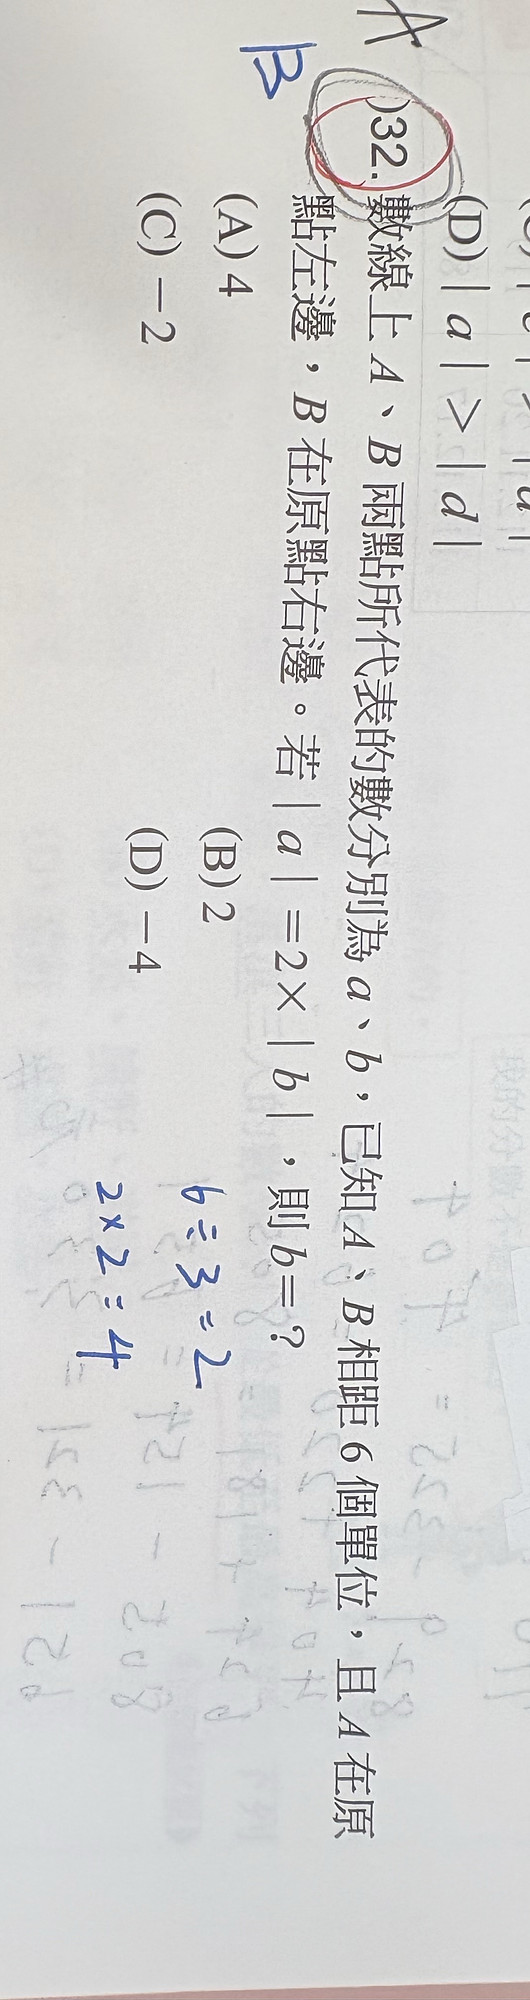 (D)|a|>|d|
A
B
)32. 數線上 A、B 兩點所代表的數分別為 a、b，已知 A、B 相距 6 個單位，且 A 在原
點左邊，B 在原點右邊。若|a|=2×|b|，則 b=?
(A) 4 (B) 2
(C) －2 (D) －4
6÷3=2
2×2=4